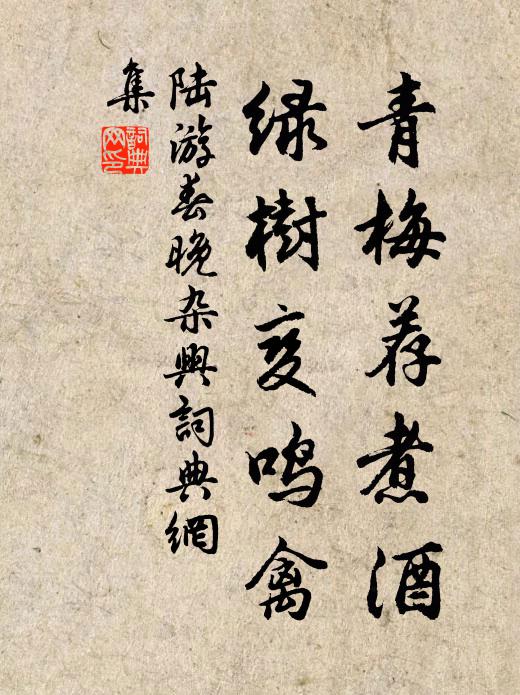 青梅荐煮酒
绿树变鸣禽
陆游春晚杂兴词典网
集
词典网印